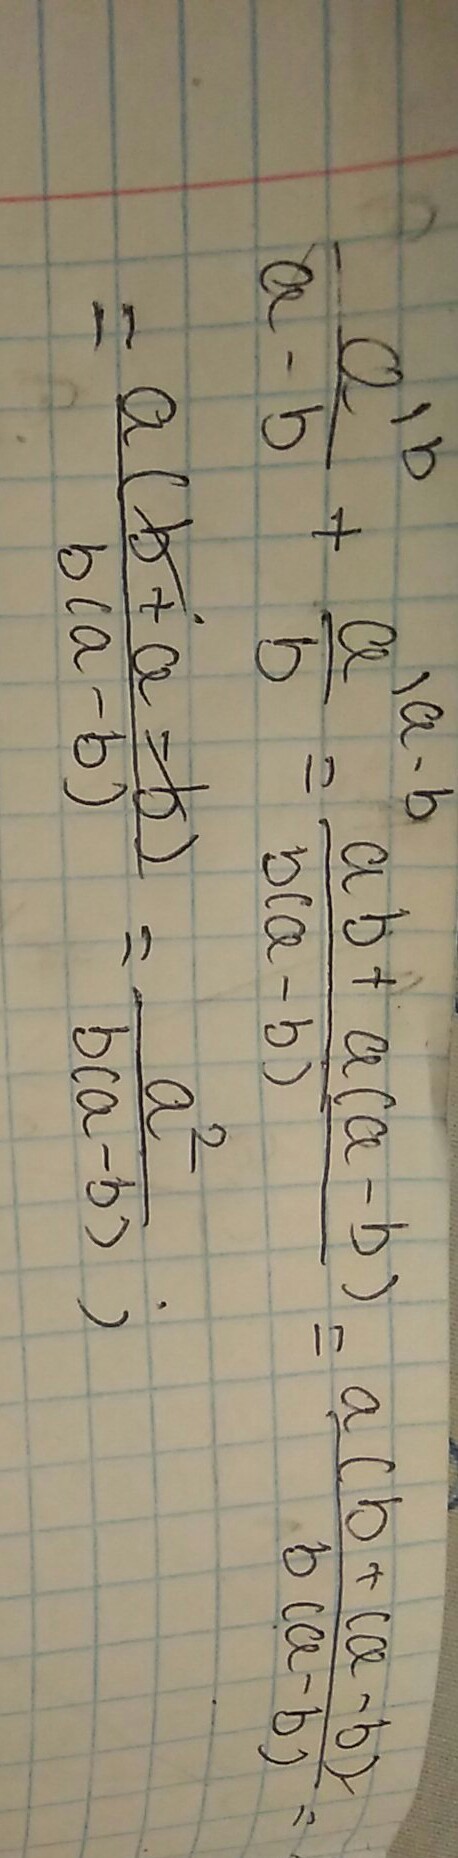 a^{\b}/(a-b) + a^{\a-b}/b = (ab+a(a-b))/(b(a-b)) = a(b+(a-b)/(b(a-b)) =
= a(b+a-b)/(b(a-b)) = a²/(b(a-b)) ;